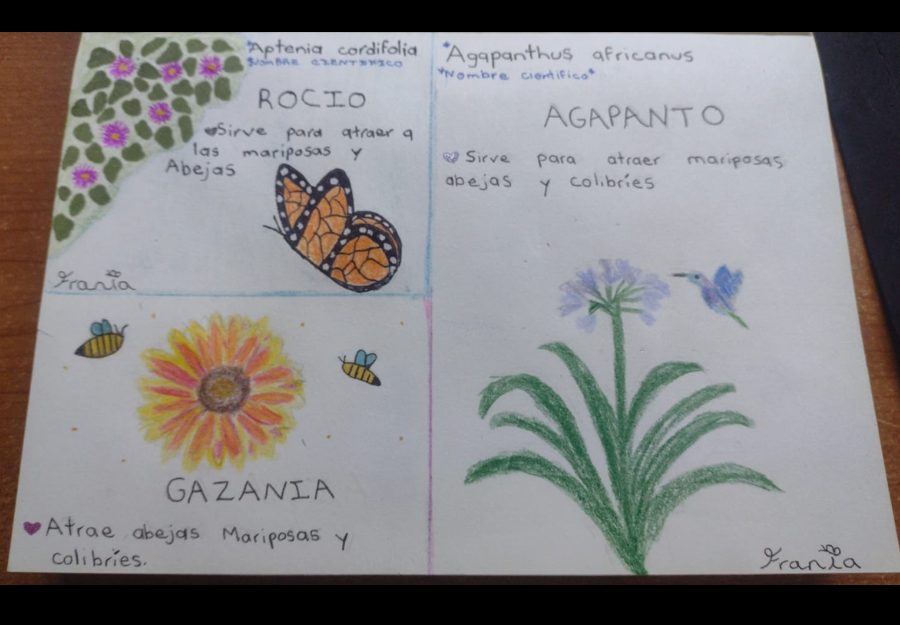 *Aptenia cordifolia
*NOMBRE CIENTIFICO
ROCIO
Sirve para atraer a
las mariposas y
Abejas
Frania
GAZANIA
Atrae abejas Mariposas y
colibríes.
*Agapanthus africanus
*Nombre cientifico*
AGAPANTO
Sirve para atraer mariposas,
abejas y colibríes
Frania